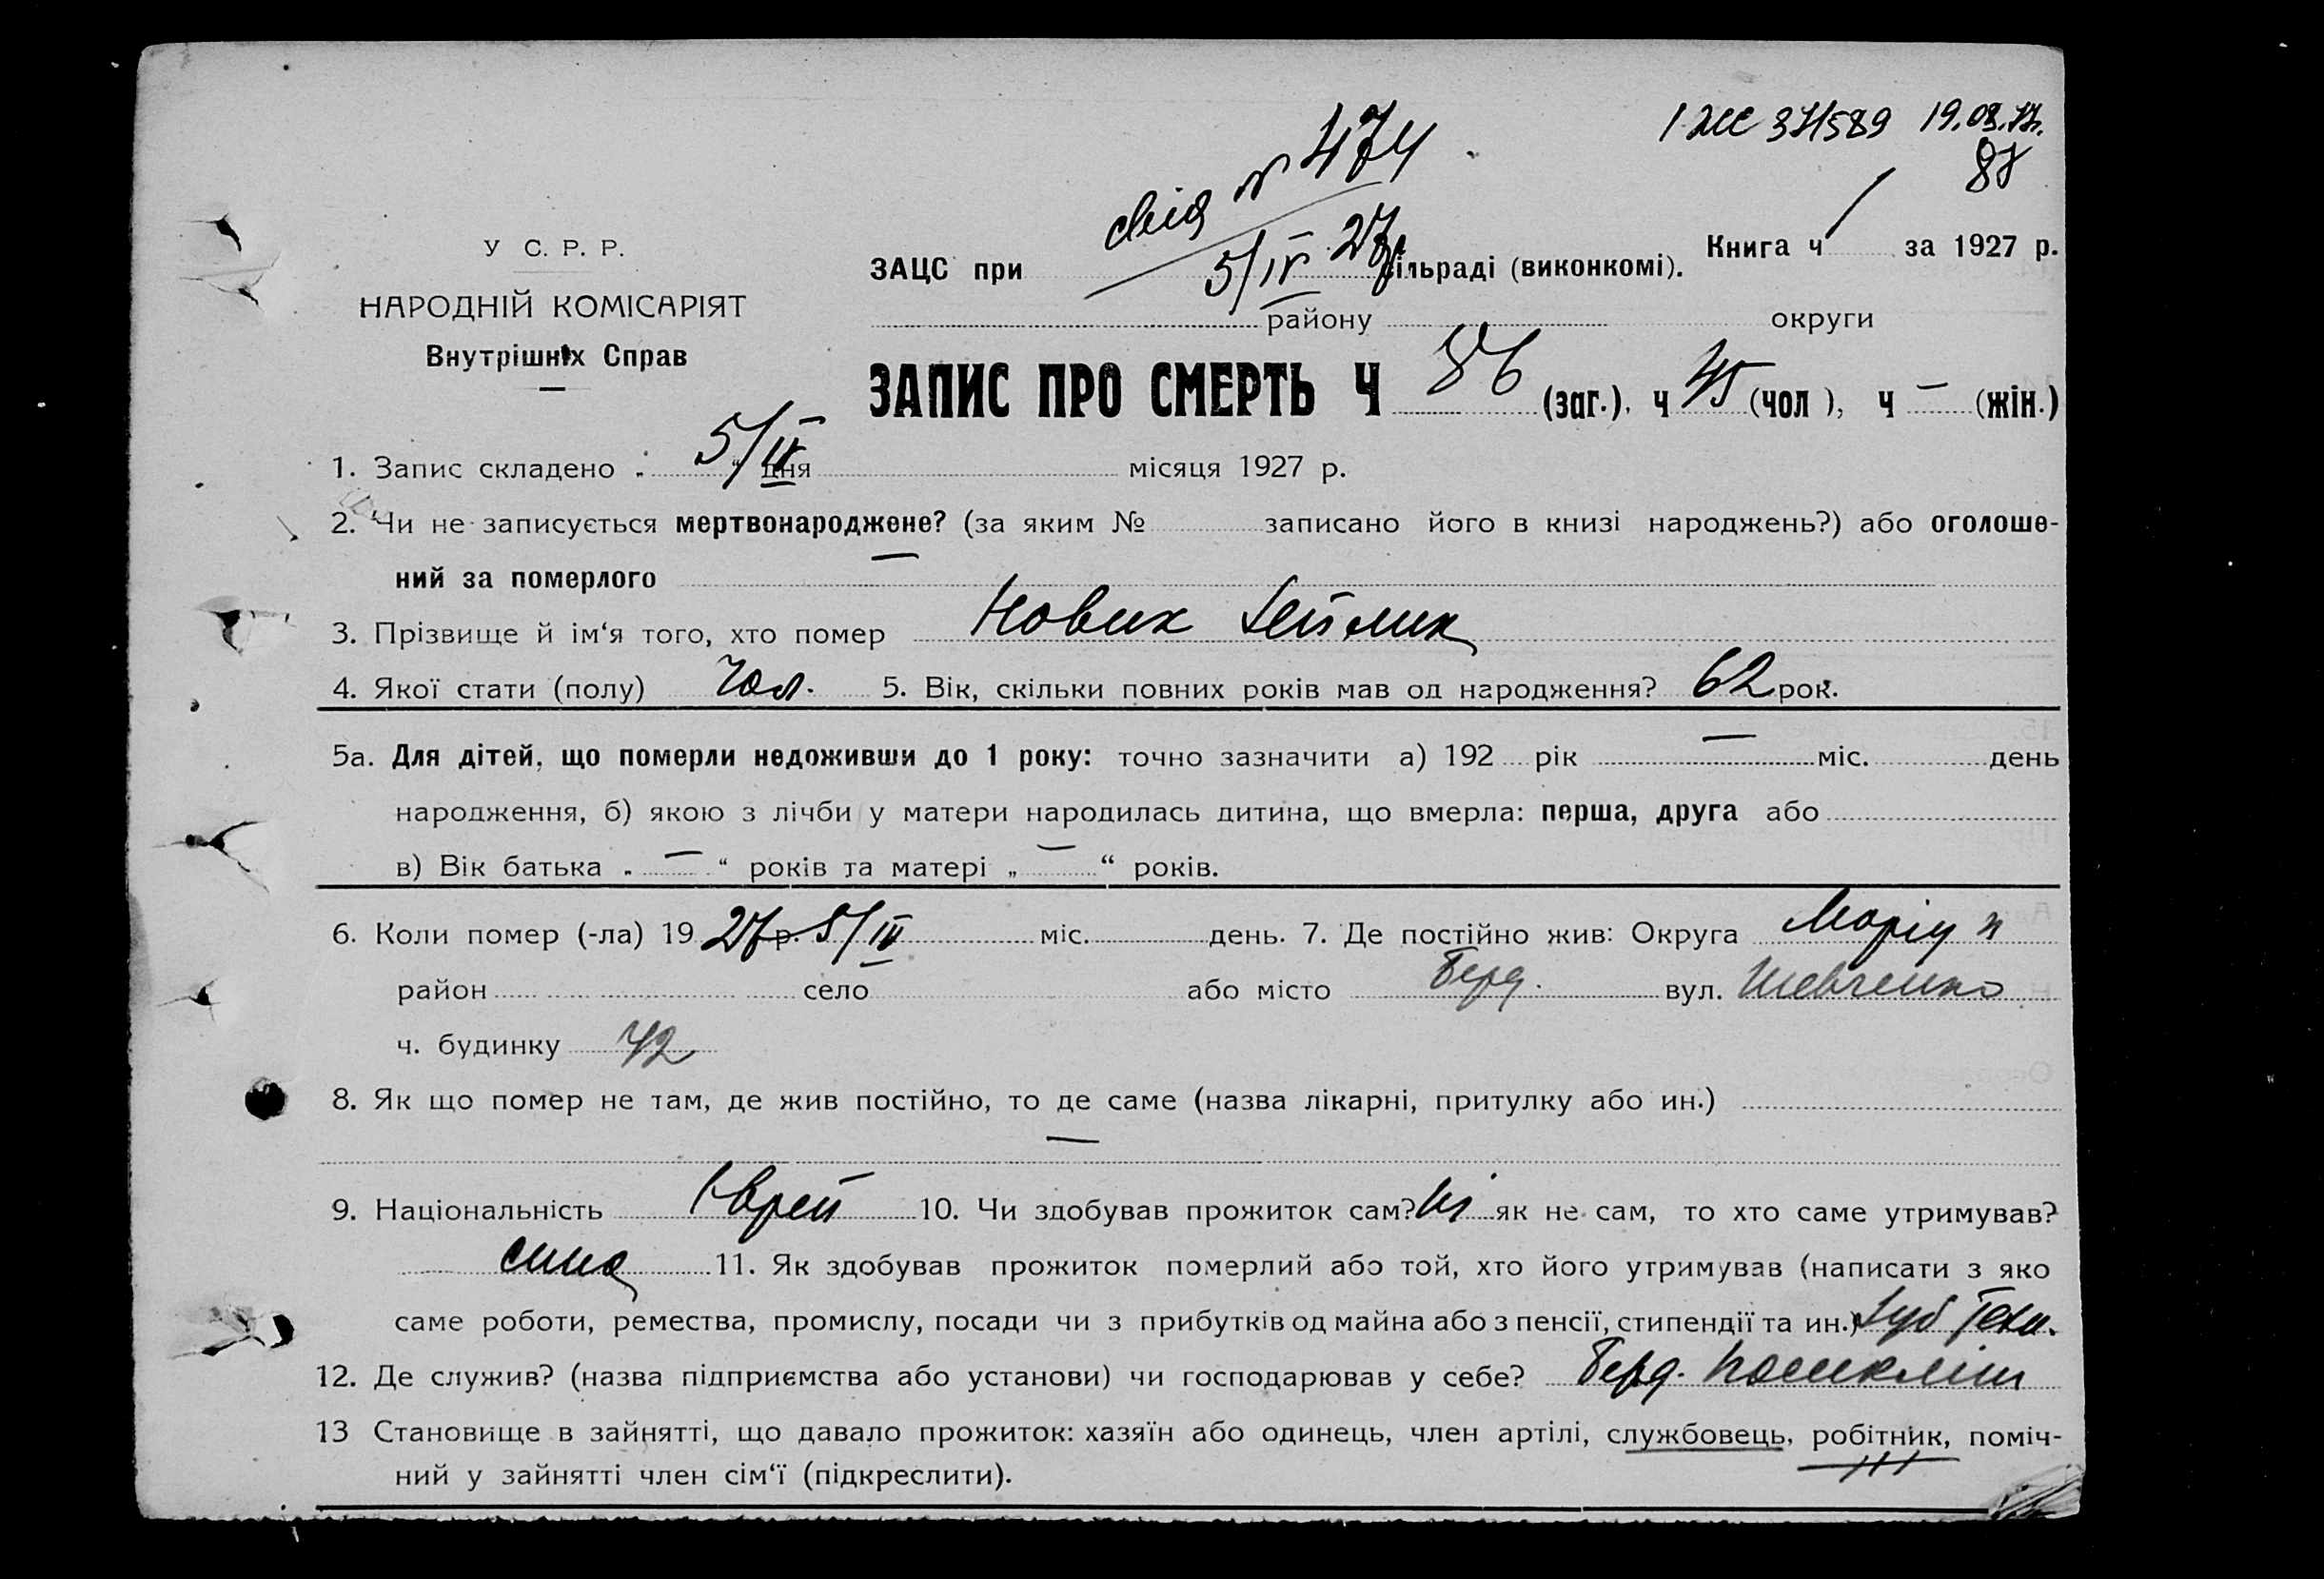 19.08.77.
88
свід № 474
5/IV 27р.
У С. Р. Р.
НАРОДНІЙ КОМІСАРІЯТ
Внутрішніх Справ
Книга ч 1 за 1927 р.
ЗАЦС при сільраді (виконкомі).
району округи
ЗАПИС ПРО СМЕРТЬ Ч 86 (заг.), ч 45 (чол), ч — (жін.)
1. Запис складено „ 5/IV “ дня місяця 1927 р.
2. Чи не записується мертвонароджене? (за яким № записано його в книзі народжень?) або оголоше-
ний за померлого —
3. Прізвище й ім‘я того, хто помер Новик
4. Якої стати (полу) Чол. 5. Вік, скільки повних років мав од народження? 62 рок.
5а. Для дітей, що померли недоживши до 1 року: точно зазначити а) 192 рік — міс. день
народження, б) якою з лічби у матери народилась дитина, що вмерла: перша, друга або
в) Вік батька „ — “ років та матері „ — “ років.
6. Коли помер (-ла) 19 27 р. 5/IV міс. день. 7. Де постійно жив: Округа Маріуп
район село або місто Берд. вул. Шевченко
ч. будинку 42
8. Як що помер не там, де жив постійно, то де саме (назва лікарні, притулку або ин.)
—
9. Національність Єврей 10. Чи здобував прожиток сам? Ні як не сам, то хто саме утримував?
сина 11. Як здобував прожиток померлий або той, хто його утримував (написати з яко
саме роботи, ремества, промислу, посади чи з прибутків од майна або з пенсії, стипендії та ин.) Зуб Техн.
12. Де служив? (назва підприємства або установи) чи господарював у себе? Берд. Поліклін
13 Становище в зайнятті, що давало прожиток: хазяїн або одинець, член артілі, службовець, робітник, поміч-
ний у зайнятті член сім‘ї (підкреслити).